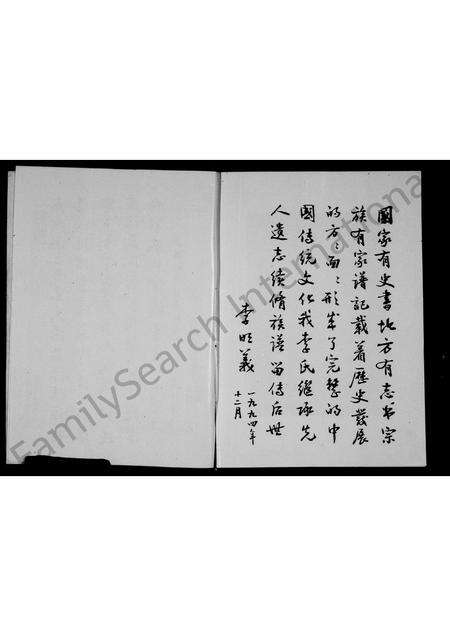 國家有史書地方有志书宗
族有家譜記載着歷史發展
的方〻面〻形成了完整的中
國傳統文化我李氏继承先
人遺志續脩族谱留傳后世
李明義
一九九四年
十二月
FamilySearch International